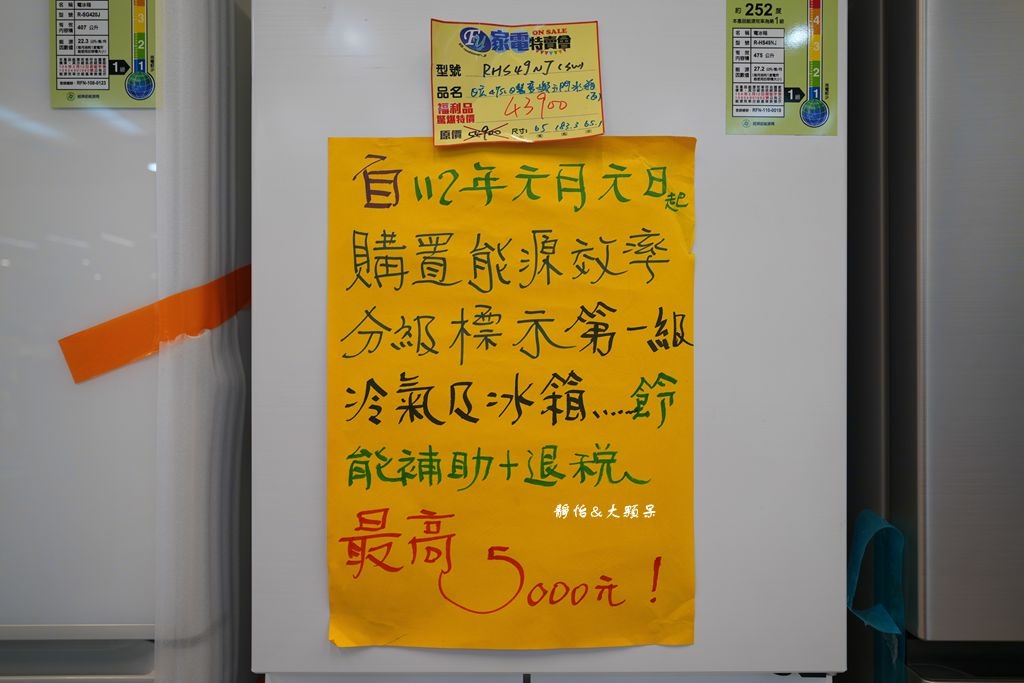 名稱 電冰箱
型號 R-SG420J
有效內容積 407 公升
能源因數值 22.3
1級
RFN-108-0123
ON SALE
家電特賣會
型號 RHS49NJ (SW)
品名 日立475L
福利品
驚爆特價
43900
原價
尺寸: 65 183.3 65.1
約 252 度
名稱 電冰箱
型號 R-HS49NJ
有效內容積 475 公升
能源因數值 27.2
1級
RFN-110-0018
自112年元月元日起
購置能源效率
分級標示第一級
冷氣及冰箱.....節
能補助+退税
靜怡&大顆呆
最高5000元!